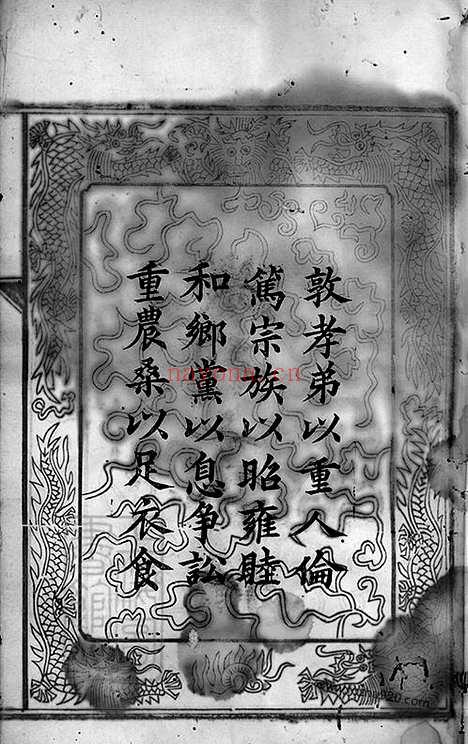 敦孝弟以重人倫
篤宗族以昭雍睦
和鄉黨以息爭訟
重農桑以足衣食
nayona.cn